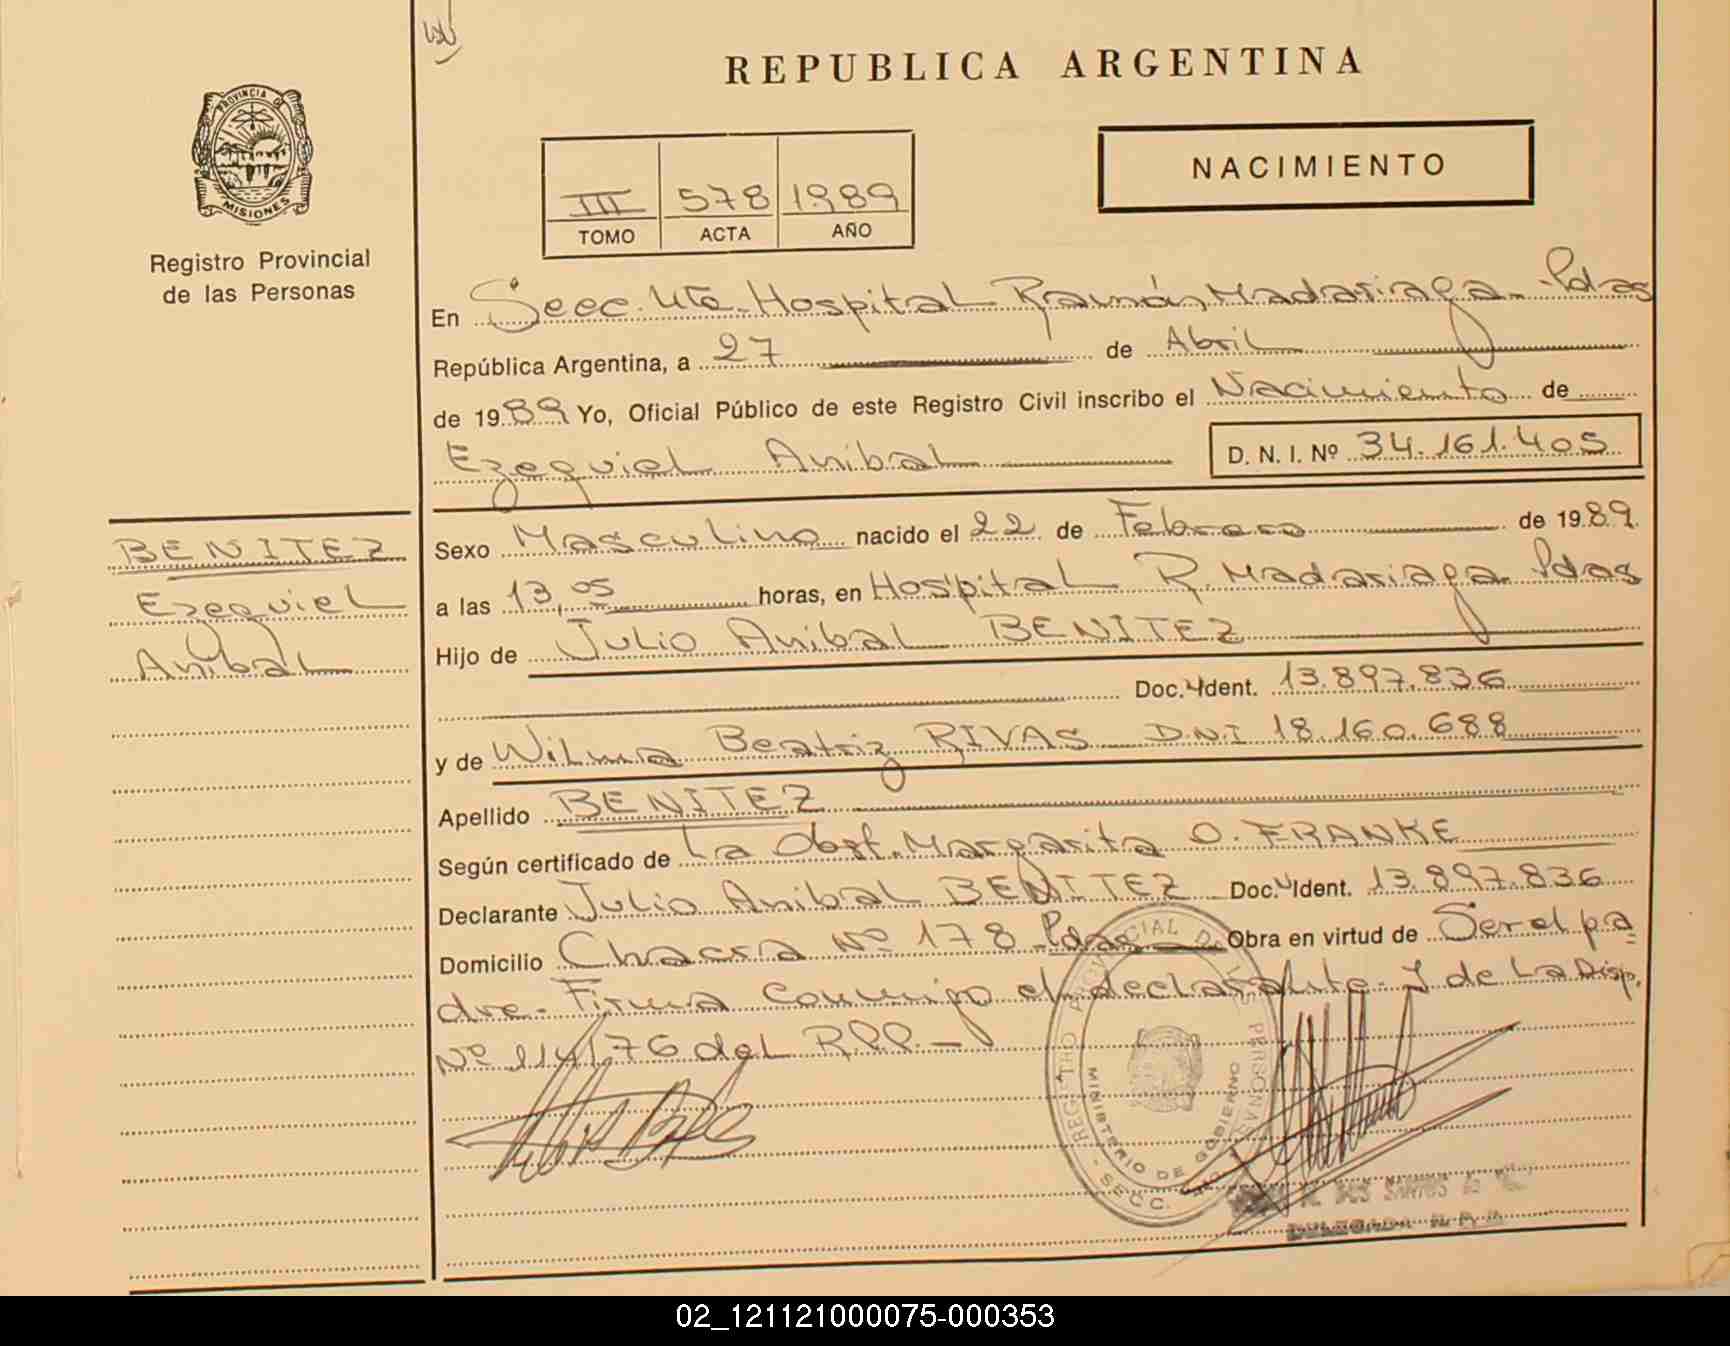 REPUBLICA ARGENTINA
PROVINCIA DE
MISIONES
Registro Provincial
de las Personas
III 578 1989
TOMO ACTA AÑO
NACIMIENTO
En Secc. Hospital Ramón Madariaga - Pdas
República Argentina, a 27 de Abril
de 1989 Yo, Oficial Público de este Registro Civil inscribo el Nacimiento de
Ezequiel Anibal D. N. I. Nº 34.161.405
BENITEZ
Ezequiel
Anibal
Sexo Masculino nacido el 22 de Febrero de 1989.
a las 13,05 horas, en Hospital R. Madariaga Pdas
Hijo de Julio Anibal BENITEZ
Doc. Ident. 13.897.836
y de Wilma Beatriz RIVAS D.N.I 18.160.688
Apellido BENITEZ
Según certificado de La Obst. Margarita O. FRANKE
Declarante Julio Anibal BENITEZ Doc. Ident. 13.897.836
Domicilio Chacra Nº 178 Pdas Obra en virtud de Ser el pa
dre. Firma conmigo el declarante. Y de La Disp.
Nº 114/76 del R.P.P.-
REGISTRO PROVINCIAL DE LAS PERSONAS
MINISTERIO DE GOBIERNO
SECC.
DOS SANTOS
DELEGADA R.P.P.
02_121121000075-000353